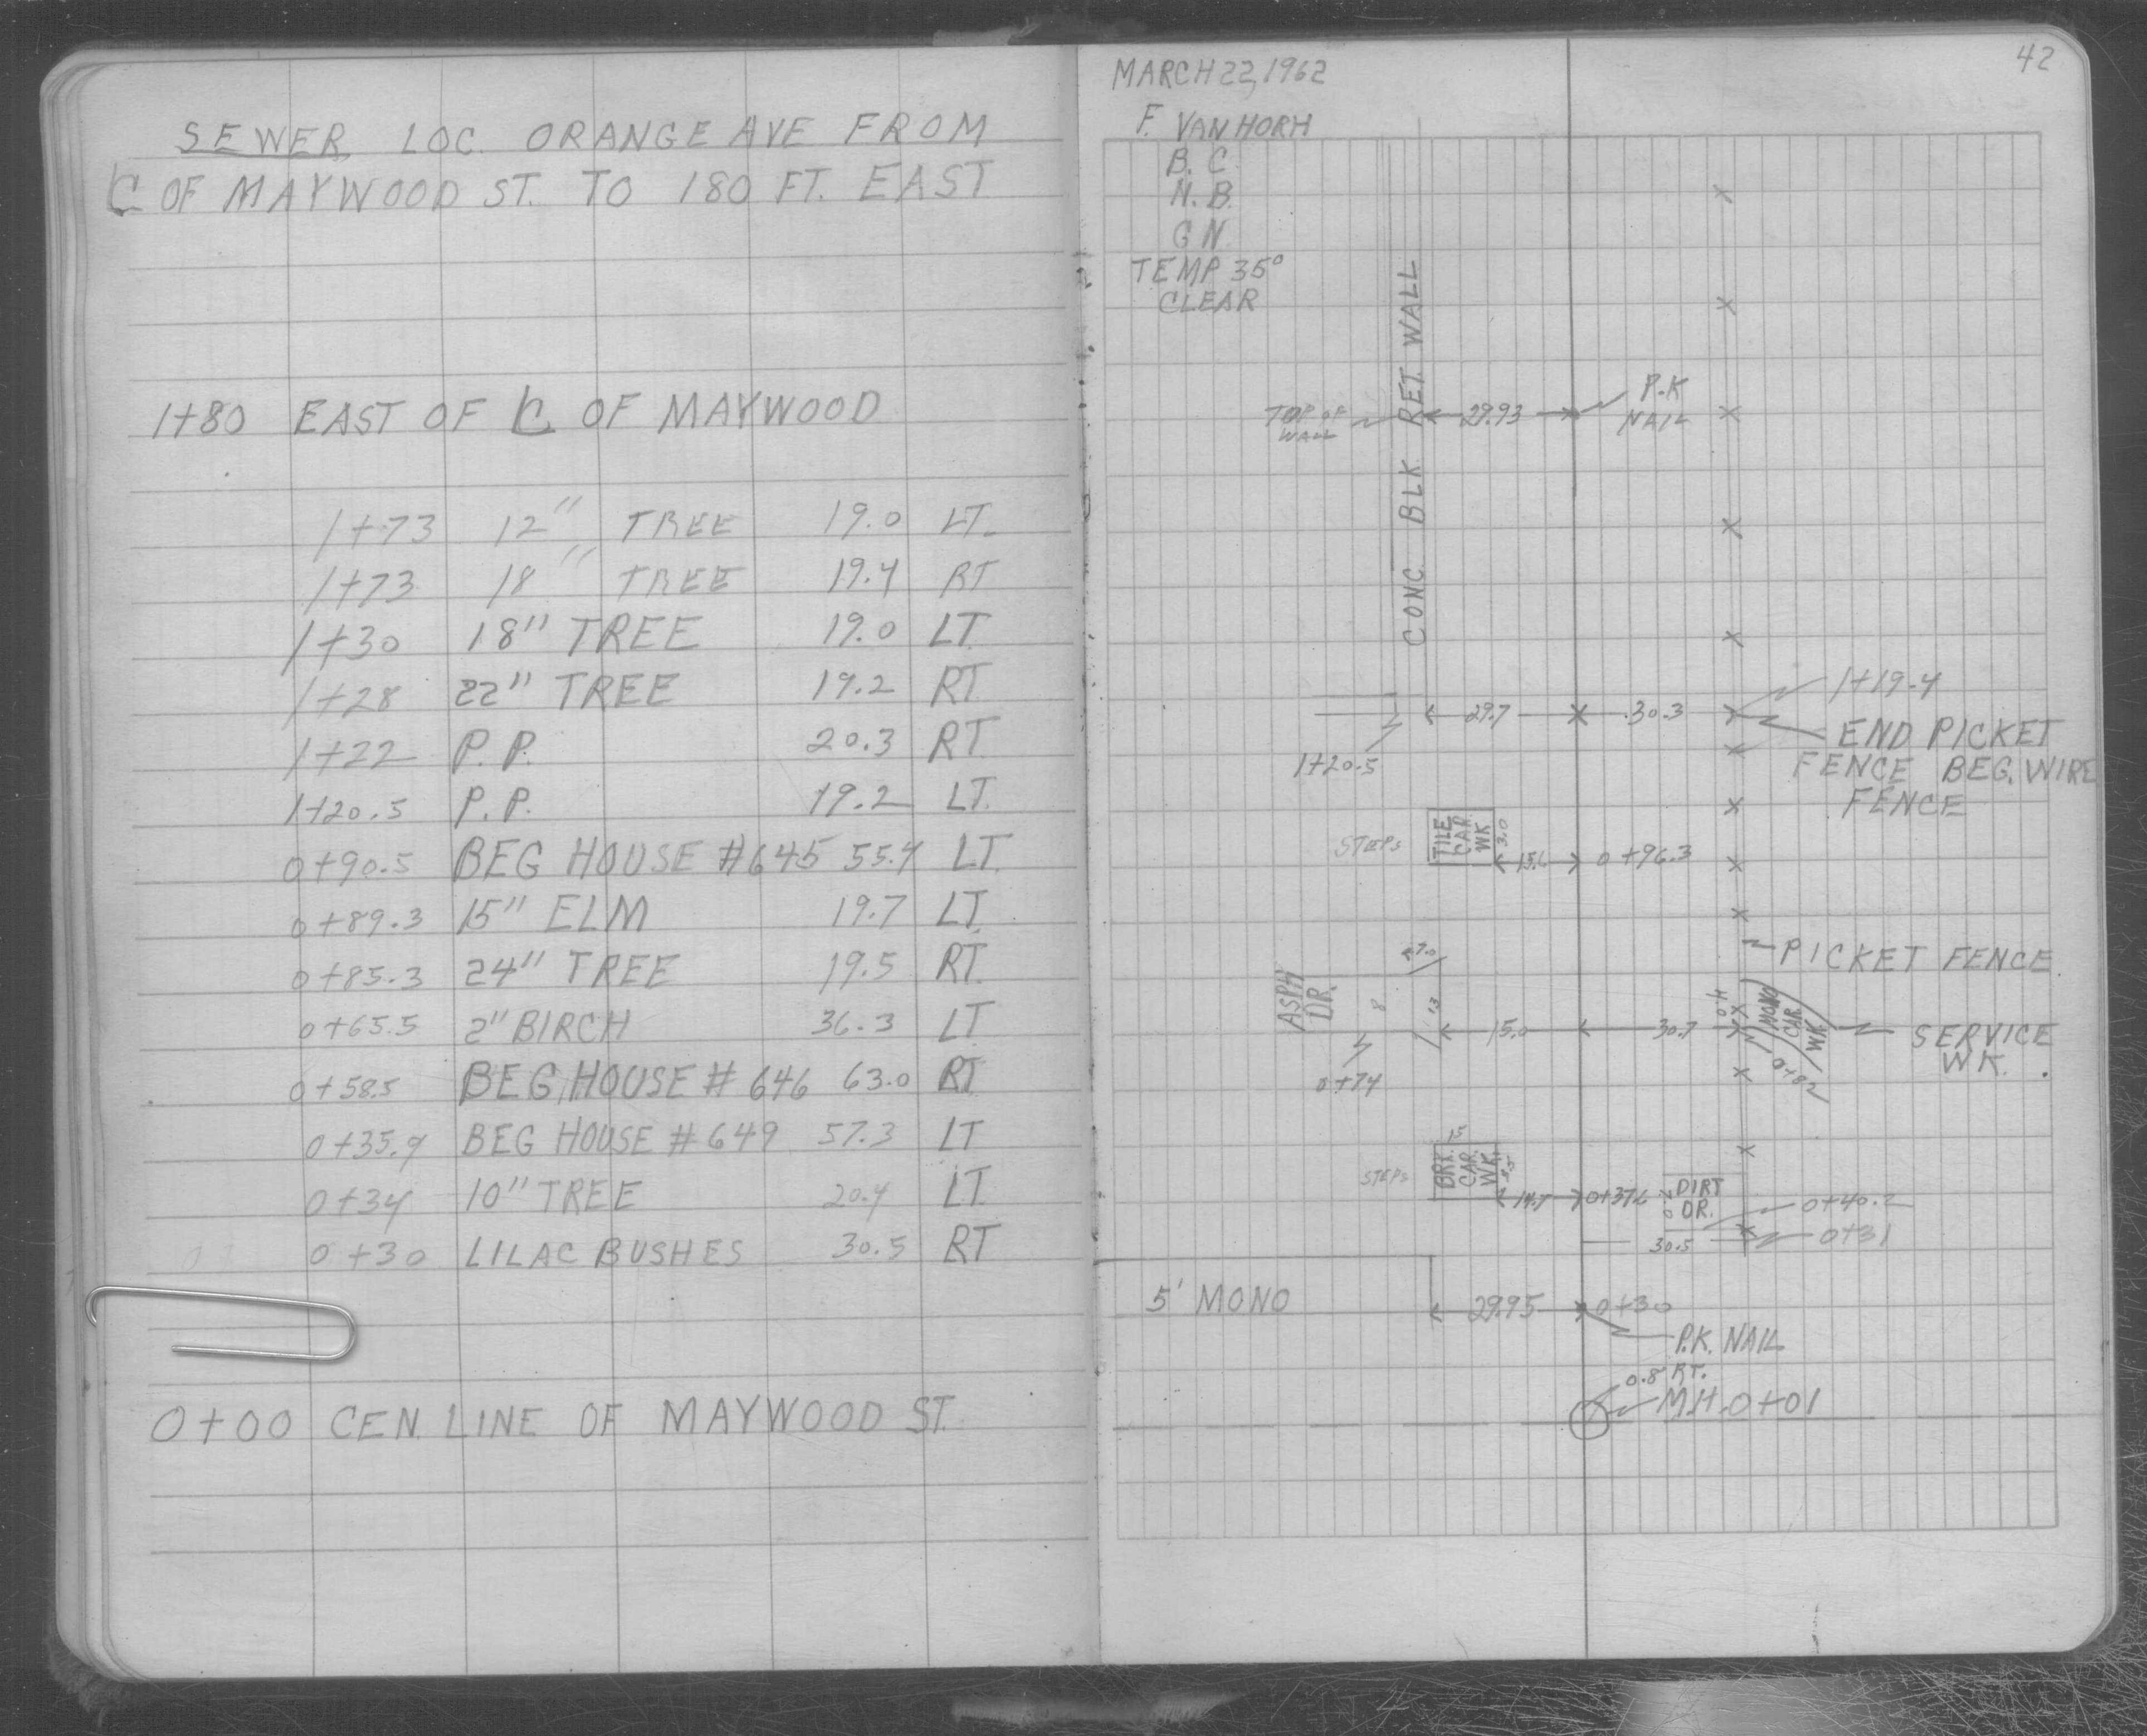 SEWER LOC. ORANGE AVE FROM
℄ OF MAYWOOD ST. TO 180 FT. EAST
1+80 EAST OF ℄ OF MAYWOOD
1+73 12" TREE 19.0 LT.
1+73 18" TREE 19.4 RT
1+30 18" TREE 19.0 LT.
1+28 22" TREE 19.2 RT
1+22 P.P. 20.3 RT
1+20.5 P.P. 19.2 LT.
0+90.5 BEG HOUSE #645 55.4 LT.
0+89.3 15" ELM 19.7 LT.
0+85.3 24" TREE 19.5 RT.
0+65.5 2" BIRCH 36.3 LT
0+58.5 BEG HOUSE # 646 63.0 RT
0+35.9 BEG HOUSE # 649 57.3 LT
0+34 10" TREE 20.4 LT
0+30 LILAC BUSHES 30.5 RT
0+00 CEN. LINE OF MAYWOOD ST.
42
MARCH 22, 1962
F. VAN HORH
B. C.
N. B.
G N
TEMP 35°
CLEAR
CONC. BLK. RET. WALL
P.K
NAIL
TOP OF
WALL
29.93
1+19.4
29.7
30.3
END PICKET
FENCE BEG. WIRE
FENCE
1+20.5
STEPS
TILE
CAR.
WK
3.0
15.6
0+96.3
PICKET FENCE
27.0
ASPH
DR.
8
13
15.0
30.7
MONO
CAR.
WK.
0+82
SERVICE
WK.
0+74
15
STEPS
BRK.
CAR.
WK.
14.7
0+37.6
DIRT
DR.
0+40.2
30.5
0+31
5' MONO
29.95
0+30
P.K. NAIL
0.8 RT.
M.H. 0+01